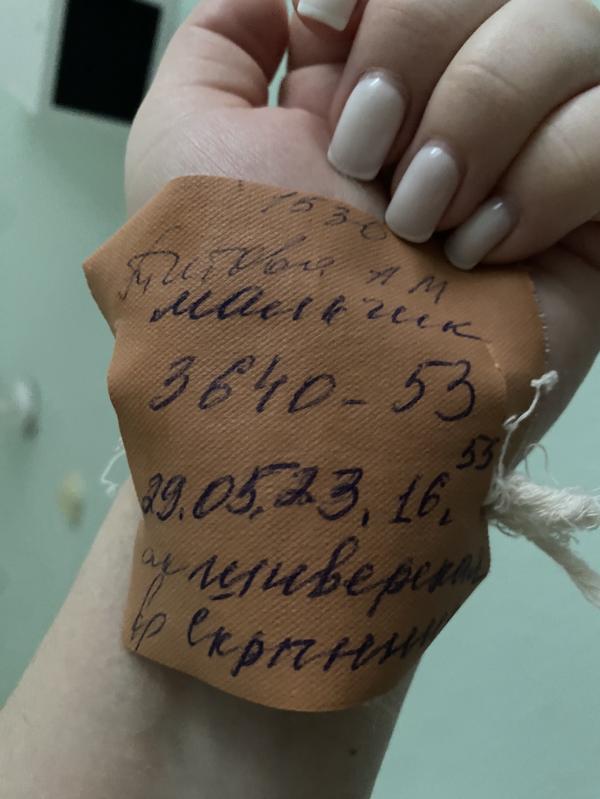 1530
Титова А М
мальчик
3640-53
29.05.23. 16.55
ак Универсал
вр Скрынник